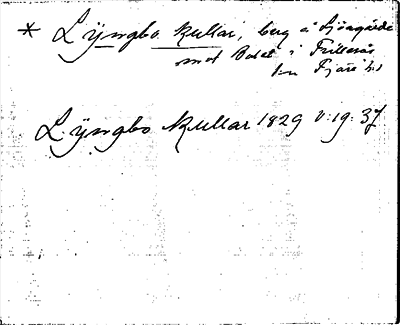 * Lÿngbo kullar, berg å Sjögärde
mot Balet i Frillesås
sn Fjäre hd
Lÿngbo Kullar 1829 V:19:37